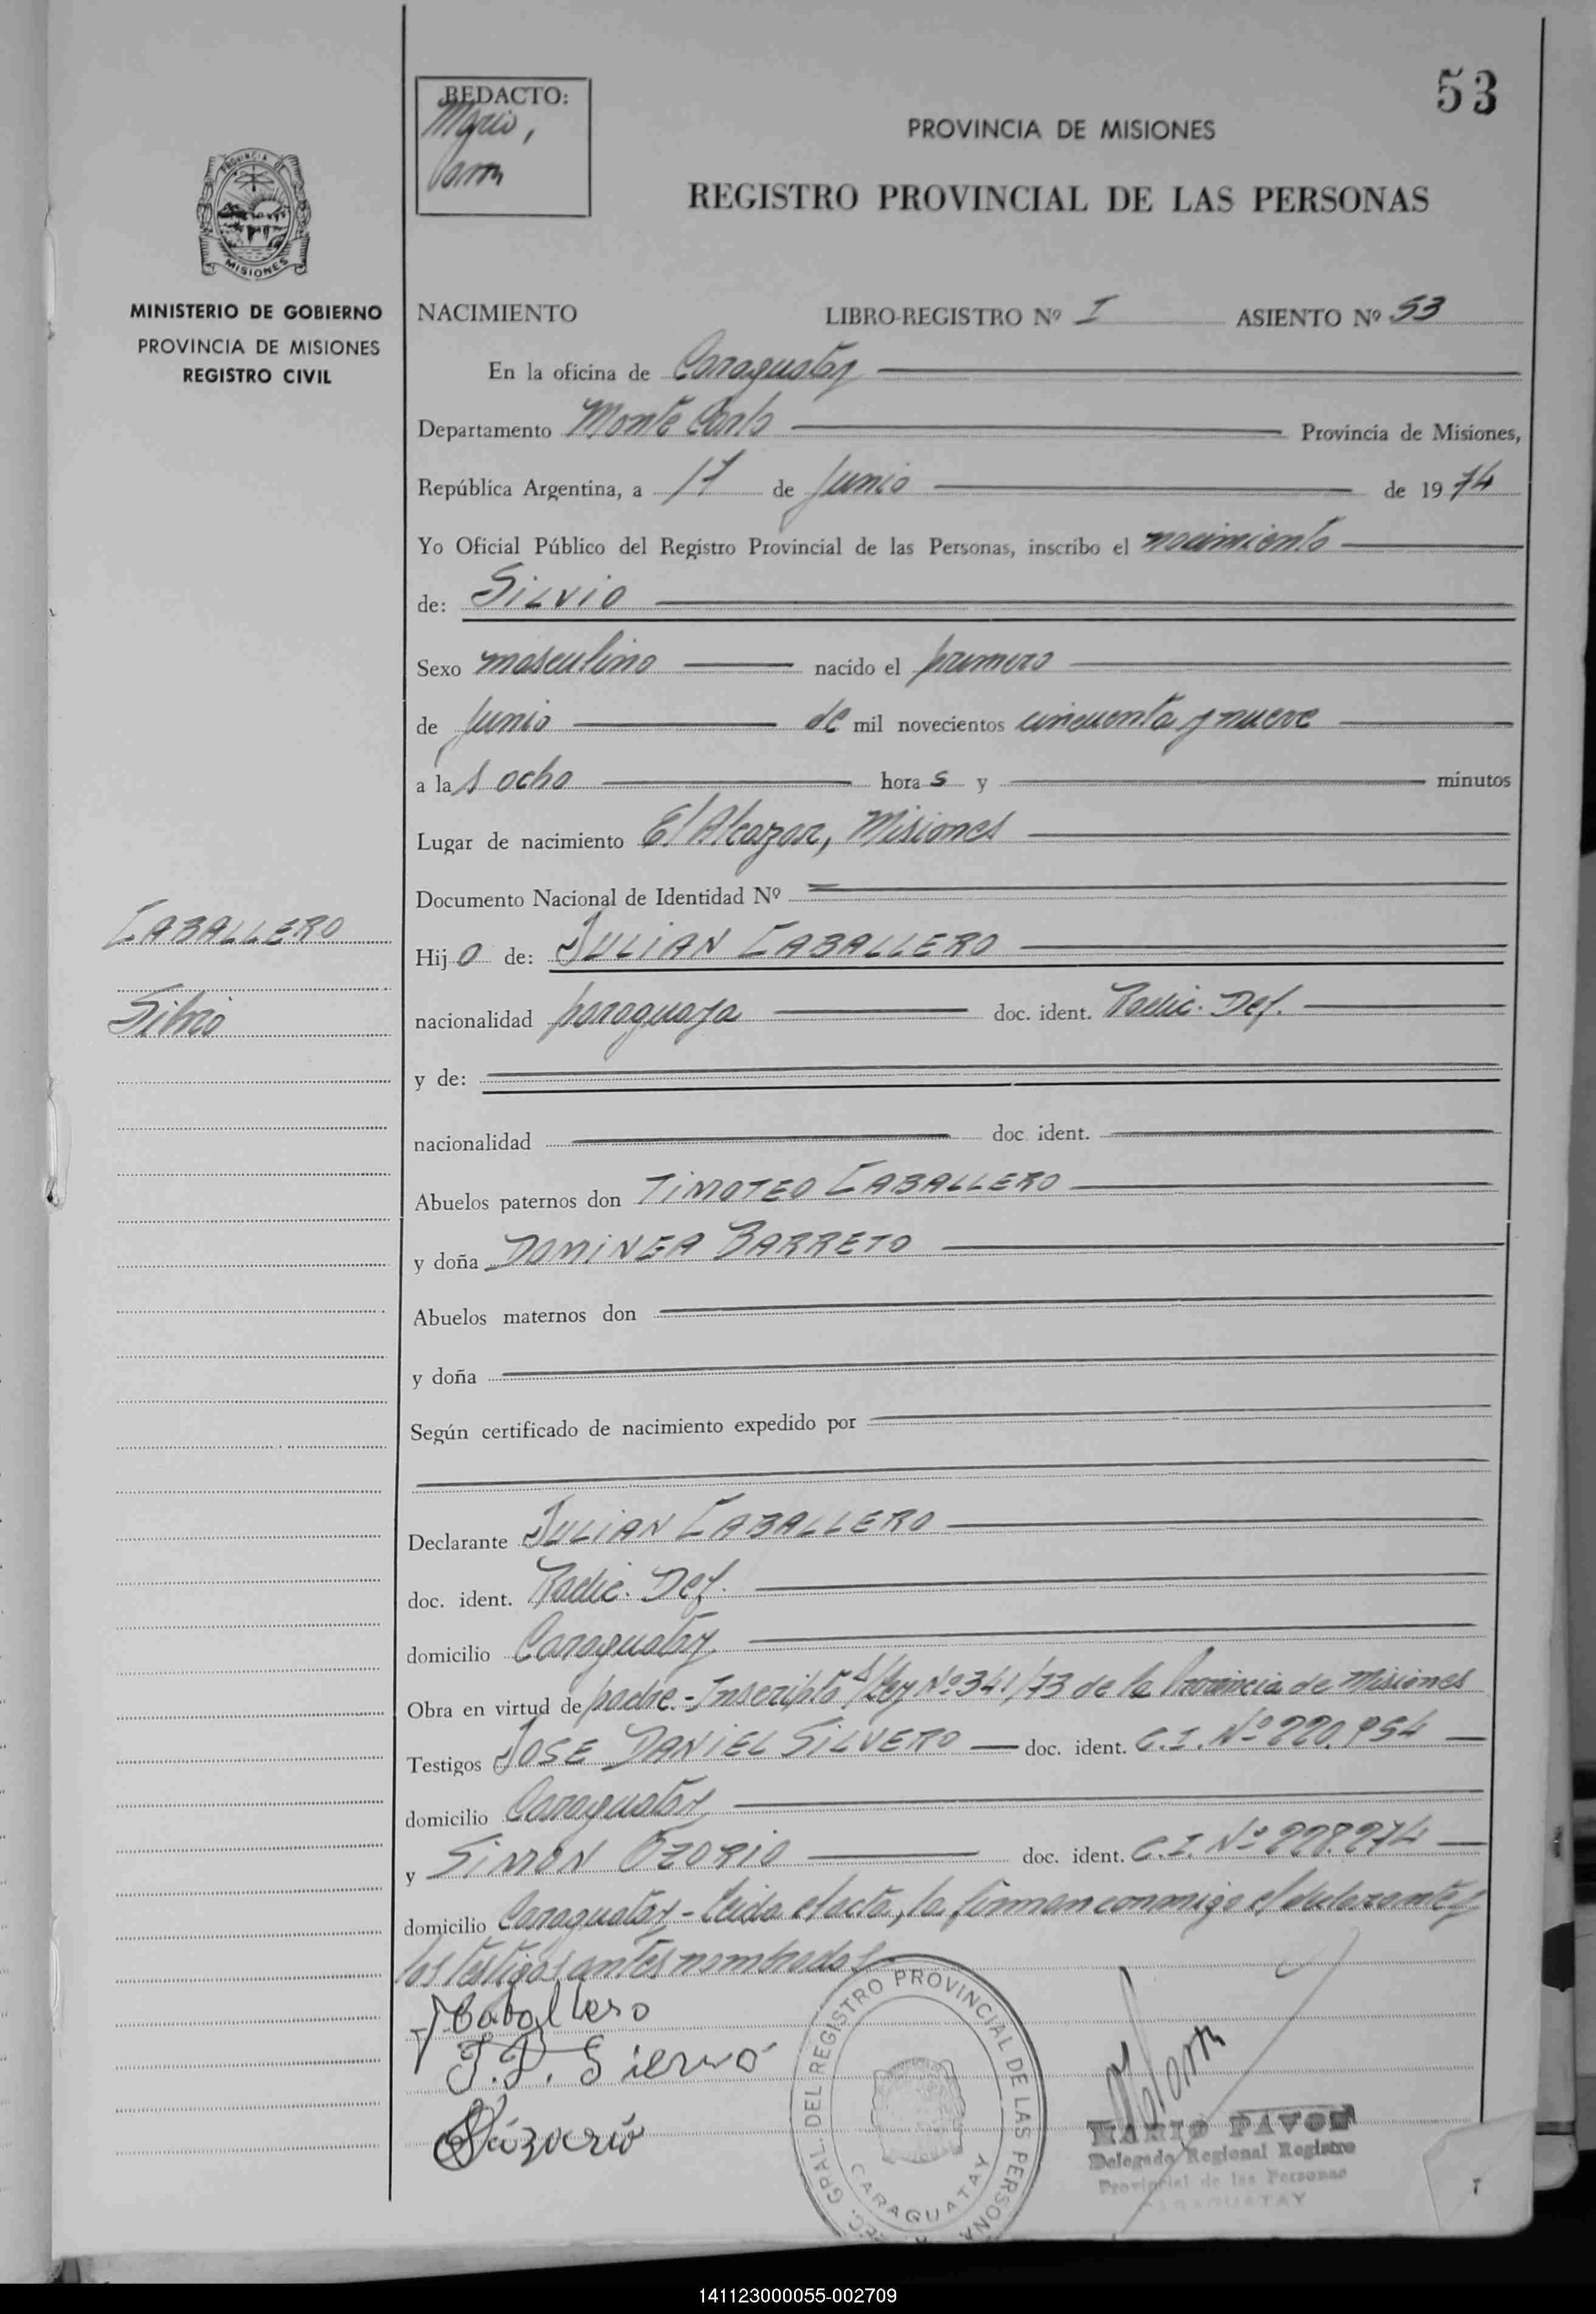 53
REDACTO:
Mario,
Pavon
PROVINCIA DE MISIONES
REGISTRO PROVINCIAL DE LAS PERSONAS
PROVINCIA DE
MISIONES
MINISTERIO DE GOBIERNO
PROVINCIA DE MISIONES
REGISTRO CIVIL
NACIMIENTO LIBRO-REGISTRO Nº I ASIENTO Nº 53
En la oficina de Caraguatay
Departamento Monte Carlo Provincia de Misiones,
República Argentina, a 17 de Junio de 1974
Yo Oficial Público del Registro Provincial de las Personas, inscribo el nacimiento
de: SILVIO
Sexo masculino nacido el primero
de Junio de mil novecientos cincuenta y nueve
a las ocho horas y minutos
Lugar de nacimiento El Alcazar, Misiones
Documento Nacional de Identidad Nº
CABALLERO
Silvio
Hijo de: JULIAN CABALLERO
nacionalidad paraguaya doc. ident. Radic. Def.
y de:
nacionalidad doc. ident.
Abuelos paternos don TIMOTEO CABALLERO
y doña DOMINGA BARRETO
Abuelos maternos don
y doña
Según certificado de nacimiento expedido por
Declarante JULIAN CABALLERO
doc. ident. Radic. Def.
domicilio Caraguatay
Obra en virtud de padre.- Inscripto s/Ley Nº 341/73 de la Provincia de Misiones
Testigos JOSE DANIEL SILVERO doc. ident. C.I. Nº 220.954
domicilio Caraguatay
y SIMON OZORIO doc. ident. C.I. Nº 228.274
domicilio Caraguatay - Leida el acta, la firman conmigo el declarante y
los testigos antes nombrados
J Caballero
DEL REGISTRO PROVINCIAL DE LAS PERSONAS
CARAGUATAY
MARIO PAVON
Delegado Regional Registro
Provincial de las Personas
CARAGUATAY
141123000055-002709